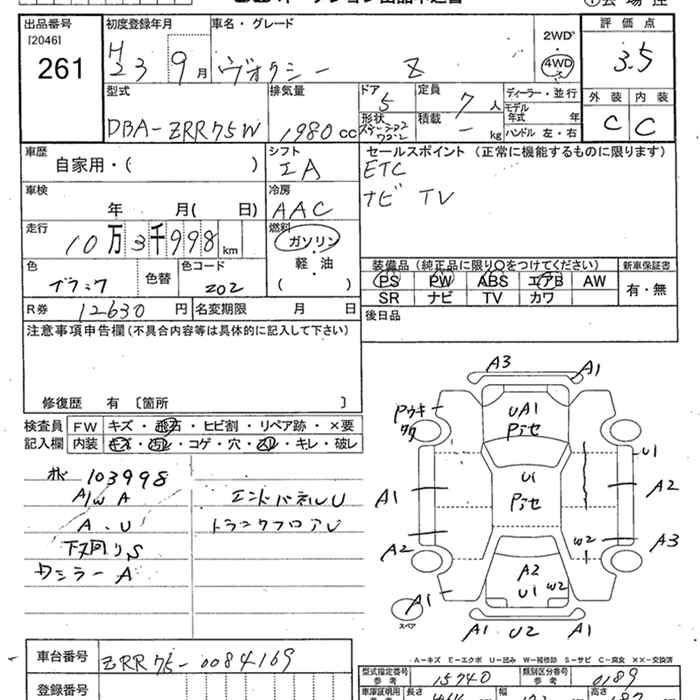 出品番号 初度登録年月 車名・グレード 評価点
[2046] 2WD
261 H23 9月 ヴォクシー Z 4WD 3.5
型式 排気量 ドア 定員 ディーラー・並行 外装 内装
5 7人 モデル年式 年
DBA-ZRR75W 1980cc 形状 積載 kg ハンドル 左・右 C C
車歴 シフト セールスポイント (正常に機能するものに限ります)
自家用・( ) IA ETC
車検 冷房 ナビ TV
年 月( 日) AAC
走行 燃料
10万3千998km ガソリン
色 色替 色コード 軽・油 装備品 (純正品に限り○をつけてください) 新車保証書
ブラック 202 ( ) PS PW ABS エアB AW 有・無
SR ナビ TV カワ
R券 12630円 名変期限 月 日 後日品
注意事項申告欄 (不具合内容等は具体的に記入して下さい)
修復歴 有 〔箇所 〕
検査員 FW キズ・飛石・ヒビ割・リペア跡・×要
記入欄 内装 キズ・汚レ・コゲ・穴・スレ・キレ・破レ
103998
A/W A エンドパネルU
A・U トランクフロアU
下廻りS
A
A3 A1
UA1
U1 U1
A1 A2
A2 W2 A3
A2
U1 W2
A1
スペア
A1 U2 A1
A-キズ E-エクボ U-凹み W-補修跡 S-サビ C-腐食 XX-交換済
車台番号 ZRR75-0084169
型式指定番号 参考 15740 類別区分番号 参考 0189
登録番号 車庫証明用 参考 長さ 幅 高さ